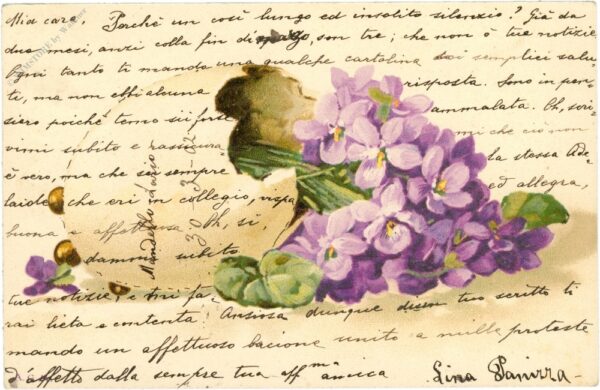 Mia cara, Perchè un così lungo ed insolito silenzio? Già da
due mesi, anzi colla fin di marzo, son tre; che non ò tue notizie
Ogni tanto ti mando una qualche cartolina coi semplici salu-
ti, ma non ebbi alcuna risposta. Sono in pen-
siero poichè temo sii forse ammalata. Oh, scri-
vimi subito e rassicura mi che ciò non
è vero, ma che sei sempre la stessa Ade-
laide che eri in collegio, vispa ed allegra,
buona e affettuosa. Oh, sì,
dammi subito
tue notizie, e mi fa-
rai lieta e contenta. Ansiosa dunque d'un tuo scritto ti
mando un affettuoso bacione unito a mille proteste
d'affetto dalla sempre tua aff.ma amica Lina Panizza
Mandello Lario
30 3